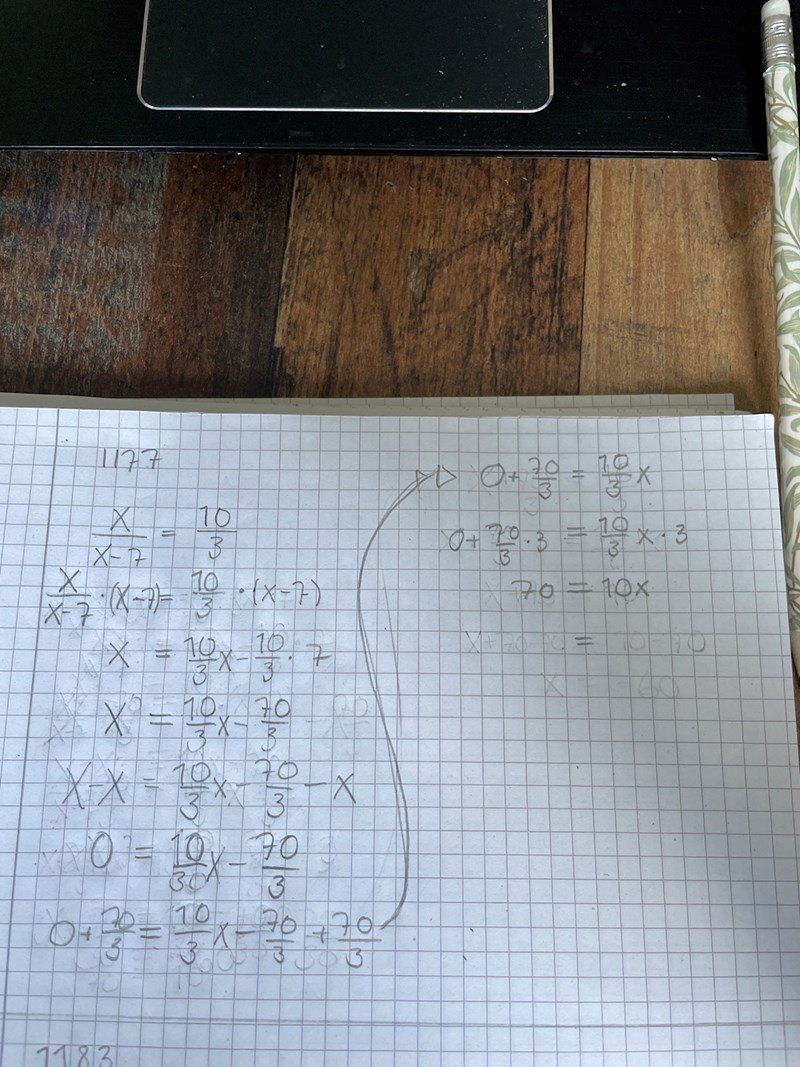 1177
x/(x-7) = 10/3
x/(x-7) · (x-7) = 10/3 · (x-7)
x = 10/3 x - 10/3 · 7
x = 10/3 x - 70/3
x-x = 10/3 x - 70/3 - x
0 = 10/30 x - 70/3
0 + 70/3 = 10/3 x - 70/3 + 70/3
0 + 70/3 = 10/3 x
0 + 70/3 · 3 = 10/3 x · 3
70 = 10x
1183